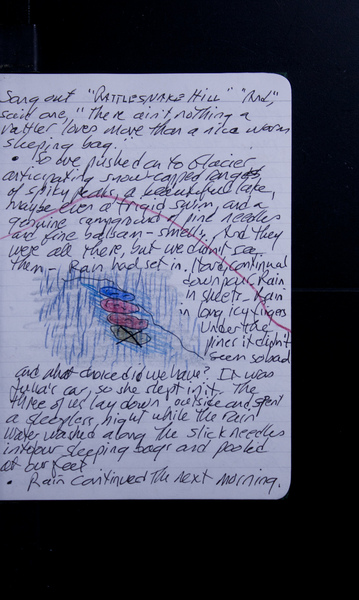 Sang out "RATTLESNAKE HILL" "And,"
said one, "there ain't nothing a
rattler loves more than a nice warm
sleeping bag."
• So we pushed on to Glacier
anticipating snow-capped ranges
of spiky peaks, a beautiful lake,
maybe even a frigid swim, and a
genuine campground of pine needles
and fine balsam-smells. And they
were all there, but we didn't see
them - Rain had set in. Hard, continual
downpour, Rain
in sheets. Rain
in long icy fingers
Under the
pines it didn't
seem so bad
and what choice did we have? It was
car, so she slept in it. The
three of us lay down outside and spent
a sleepless night while the rain
water washed along the slick needles
into our sleeping bags and pooled
at our feet
• Rain continued the next morning.